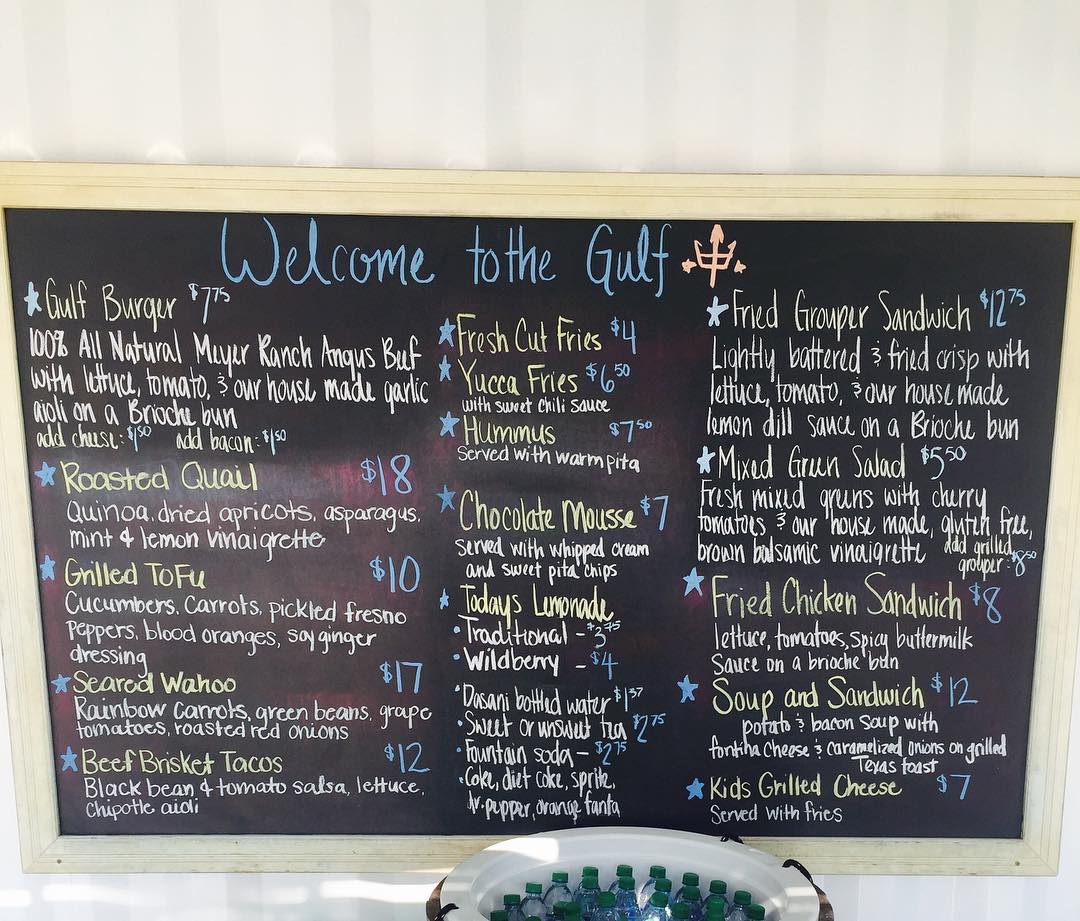 Welcome to the Gulf
Gulf Burger $7.75
100% All Natural Meyer Ranch Angus Beef
with lettuce, tomato, & our house made garlic
aioli on a Brioche bun
add cheese: $1.50 add bacon: $1.50
Roasted Quail $18
Quinoa, dried apricots, asparagus,
mint & lemon vinaigrette
Grilled ToFu $10
Cucumbers, Carrots, pickled fresno
peppers, blood oranges, soy ginger
dressing
Seared Wahoo $17
Rainbow Carrots, green beans, grape
tomatoes, roasted red onions
Beef Brisket Tacos $12
Black bean & tomato salsa, lettuce,
Chipotle aioli
Fresh Cut Fries $4
Yucca Fries $6.50
with sweet chili sauce
Hummus $7.50
Served with warm pita
Chocolate Mousse $7
served with whipped cream
and sweet pita chips
Todays Lemonade
• Traditional - $3.75
• Wildberry - $4
• Dasani bottled water $1.37
• Sweet or unsweet tea $2.75
• Fountain soda - $2.75
• Coke, diet coke, sprite,
dr. pepper, orange fanta
Fried Grouper Sandwich $12.75
Lightly battered & fried crisp with
lettuce, tomato, & our house made
lemon dill sauce on a Brioche bun
Mixed Green Salad $5.50
Fresh mixed greens with cherry
tomatoes & our house made, gluten free,
brown balsamic vinaigrette add grilled
grouper: $8.50
Fried Chicken Sandwich $8
lettuce, tomatoes, spicy buttermilk
Sauce on a brioche bun
Soup and Sandwich $12
potato & bacon soup with
fontina cheese & caramelized onions on grilled
Texas toast
Kids Grilled Cheese $7
Served with fries